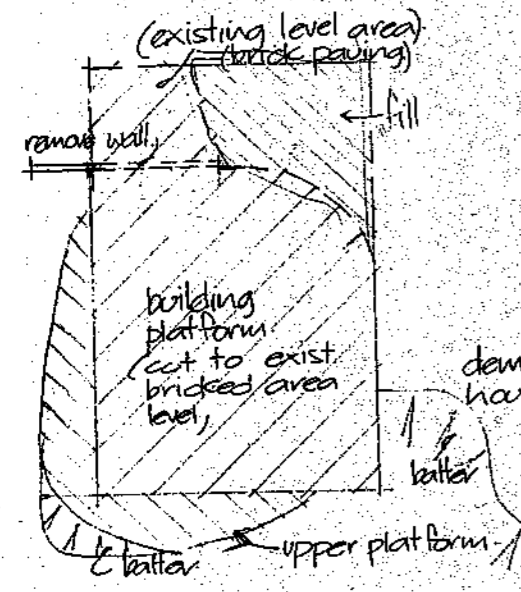 (existing level area)
(brick paving)
fill
remove wall,
building
platform
(cut to exist.
bricked area
level,
batter
upper platform
batter